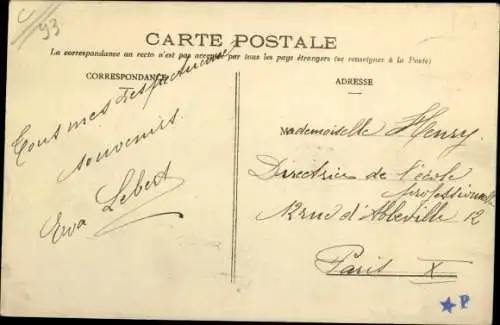 C/93
CARTE POSTALE
La correspondance au recto n'est pas acceptée par tous les pays étrangers (se renseigner à la Poste)
CORRESPONDANCE
ADRESSE
Tous mes respectueux
souvenirs.
Eva Lebert
Mademoiselle Henry
Directrice de l'école
professionnelle
12 rue d'Abbeville 12
Paris X
P